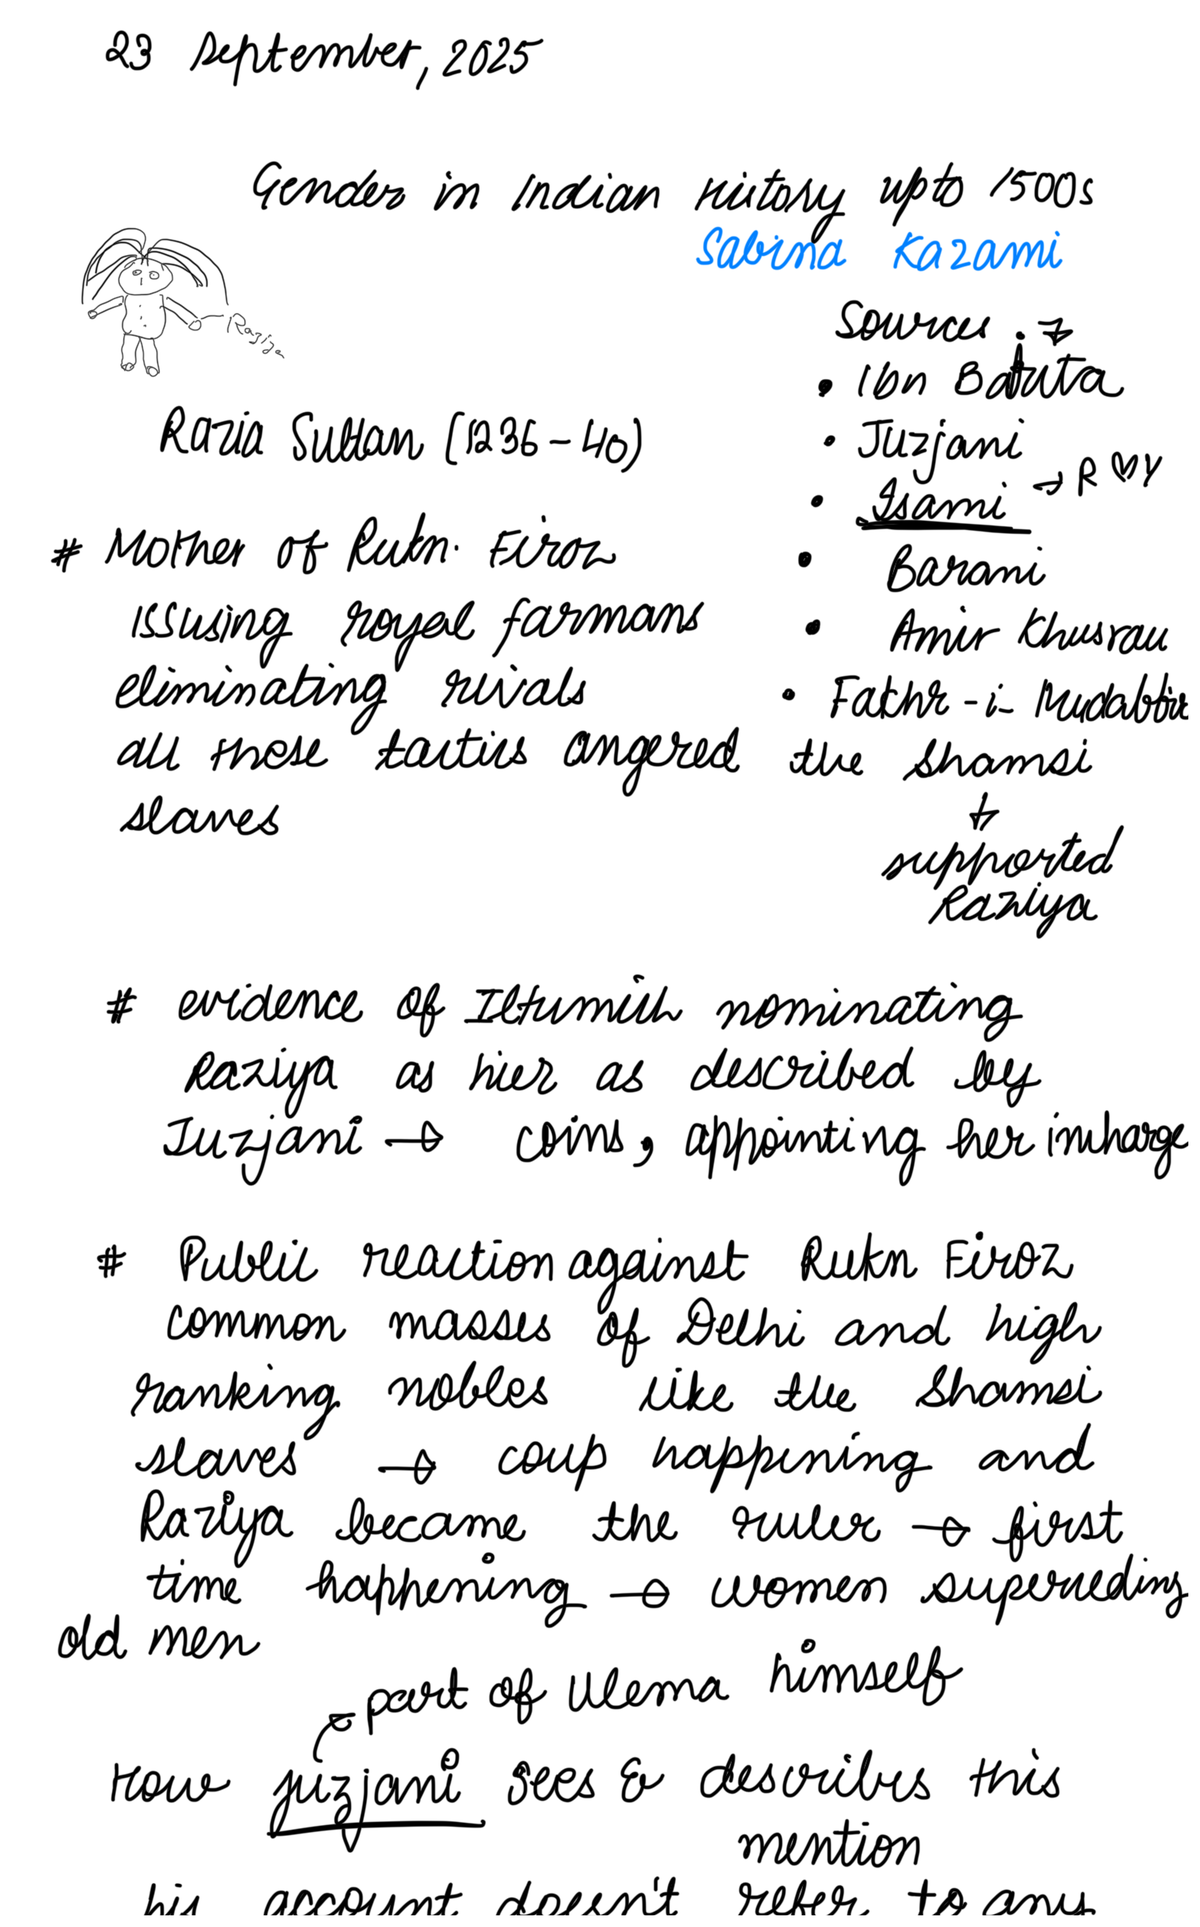 23 September, 2025
Gender in Indian History upto 1500s
Sabina Kazami
Raziya
Sources :→
• Ibn Batuta
• Juzjani
• Isami → R
• Barani
• Amir Khusrau
• Fakhr-i- Mudabbir
Razia Sultan (1236-40)
# Mother of Rukn. Firoz
issusing royal farmans
eliminating rivals
all these tactics angered the Shamsi
slaves
↓
supported
Raziya
# evidence of Iltumish nominating
Raziya as hier as described by
Juzjani → coins, appointing her incharge
# Public reaction against Rukn Firoz
common masses of Delhi and high
ranking nobles like the Shamsi
slaves → coup happining and
Raziya became the ruler → first
time happening → women superceding
old men
part of Ulema himself
How juzjani sees & describes this
mention
his account doesn't refer to any